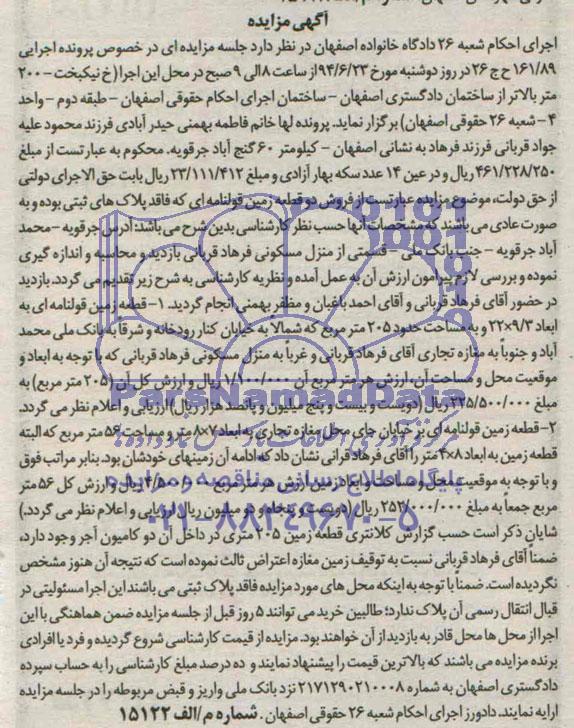 آگهی مزایده
اجرای احکام شعبه ۲۶ دادگاه خانواده اصفهان در نظر دارد جلسه مزایده ای در خصوص پرونده اجرایی
۱۶۱/۸۹ ح ج ۲۶ در روز دوشنبه مورخ ۹۴/۶/۲۳ از ساعت ۸ الی ۹ صبح در محل این اجرا (خ نیکبخت – ۲۰۰
متر بالاتر از ساختمان دادگستری اصفهان – ساختمان اجرای احکام حقوقی اصفهان – طبقه دوم – واحد
۴ – شعبه ۲۶ حقوقی اصفهان) برگزار نماید. پرونده لها خانم فاطمه بهمنی حیدر آبادی فرزند محمود علیه
جواد قربانی فرزند فرهاد به نشانی اصفهان – کیلومتر ۶۰ گنج آباد جرقویه. محکوم به عبارتست از مبلغ
۴۶۱/۲۲۸/۲۵۰ ریال و در عین ۱۴ عدد سکه بهار آزادی و مبلغ ۲۳/۱۱۱/۴۱۲ ریال بابت حق الاجرای دولتی
از حق دولت، موضوع مزایده عبارتست از فروش دو قطعه زمین قولنامه ای که فاقد پلاک های ثبتی بوده و به
صورت عادی می باشند که مشخصات آنها حسب نظر کارشناسی بدین شرح می باشد: آدرس جرقویه – محمد
آباد جرقویه – جنب بانک ملی – قسمتی از منزل مسکونی فرهاد قربانی بازدید و محاسبه و اندازه گیری
نموده و بررسی لازم پیرامون ارزش آن به عمل آمده و نظریه کارشناسی به شرح زیر تقدیم می گردد. بازدید
در حضور آقای فرهاد قربانی و آقای احمد باغبان و مظفر بهمنی انجام گردید. ۱- قطعه زمین قولنامه ای به
ابعاد ۹/۳×۲۲ و به مساحت حدود ۲۰۵ متر مربع که شمالاً به خیابان کنار رودخانه و شرقاً به بانک ملی محمد
آباد و جنوباً به مغازه تجاری آقای فرهاد قربانی و غرباً به منزل مسکونی فرهاد قربانی که با توجه به ابعاد و
موقعیت محل و مساحت آن، ارزش هر متر مربع آن ۱/۱۰۰/۰۰۰ ریال و ارزش کل آن (۲۰۵ متر مربع) به
مبلغ ۲۲۵/۵۰۰/۰۰۰ ریال (دویست و بیست و پنج میلیون و پانصد هزار ریال) ارزیابی و اعلام نظر می گردد.
۲- قطعه زمین قولنامه ای بر خیابان جای محل مغازه تجاری به ابعاد ۷×۸ متر و مساحت ۵۶ متر مربع که البته
قطعه زمین به ابعاد ۸×۴ متر را آقای فرهاد قربانی نشان داد که ادامه آن زمینهای خودشان بود. بنابر مراتب فوق
و با توجه به موقعیت محل و مساحت و ابعاد زمین ارزش هر متر مربع ۴/۵۰۰/۰۰۰ ریال و ارزش کل ۵۶ متر
مربع جمعاً به مبلغ ۲۵۲/۰۰۰/۰۰۰ ریال (دویست و پنجاه و دو میلیون ریال) ارزیابی و اعلام نظر می گردد.)
شایان ذکر است حسب گزارش کلانتری قطعه زمین ۲۰۵ متری در داخل آن دو کامیون آجر وجود دارد،
ضمناً آقای فرهاد قربانی نسبت به توقیف زمین مغازه اعتراض ثالث نموده است که نتیجه آن هنوز مشخص
نگردیده است. ضمناً با توجه به اینکه محل های مورد مزایده فاقد پلاک ثبتی می باشند این اجرا مسئولیتی در
قبال انتقال رسمی آن پلاک ندارد؛ طالبین خرید می توانند ۵ روز قبل از جلسه مزایده ضمن هماهنگی با این
اجرا از محل ها محل قادر به بازدید از آن خواهند بود. مزایده از قیمت کارشناسی شروع گردیده و فرد یا افرادی
برنده مزایده می باشند که بالاترین قیمت را پیشنهاد نمایند و ده درصد مبلغ کارشناسی را به حساب سپرده
دادگستری اصفهان به شماره ۲۱۷۱۲۹۰۲۱۰۰۰۸ نزد بانک ملی واریز و قبض مربوطه را در جلسه مزایده
ارایه نمایند. دادورز اجرای احکام شعبه ۲۶ حقوقی اصفهان. شماره م/الف ۱۵۱۲۲
ParsNamadData
پایگاه اطلاع رسانی مناقصه و مزایده
۰۲۱-۸۸۳۴۹۶۷۰-۵